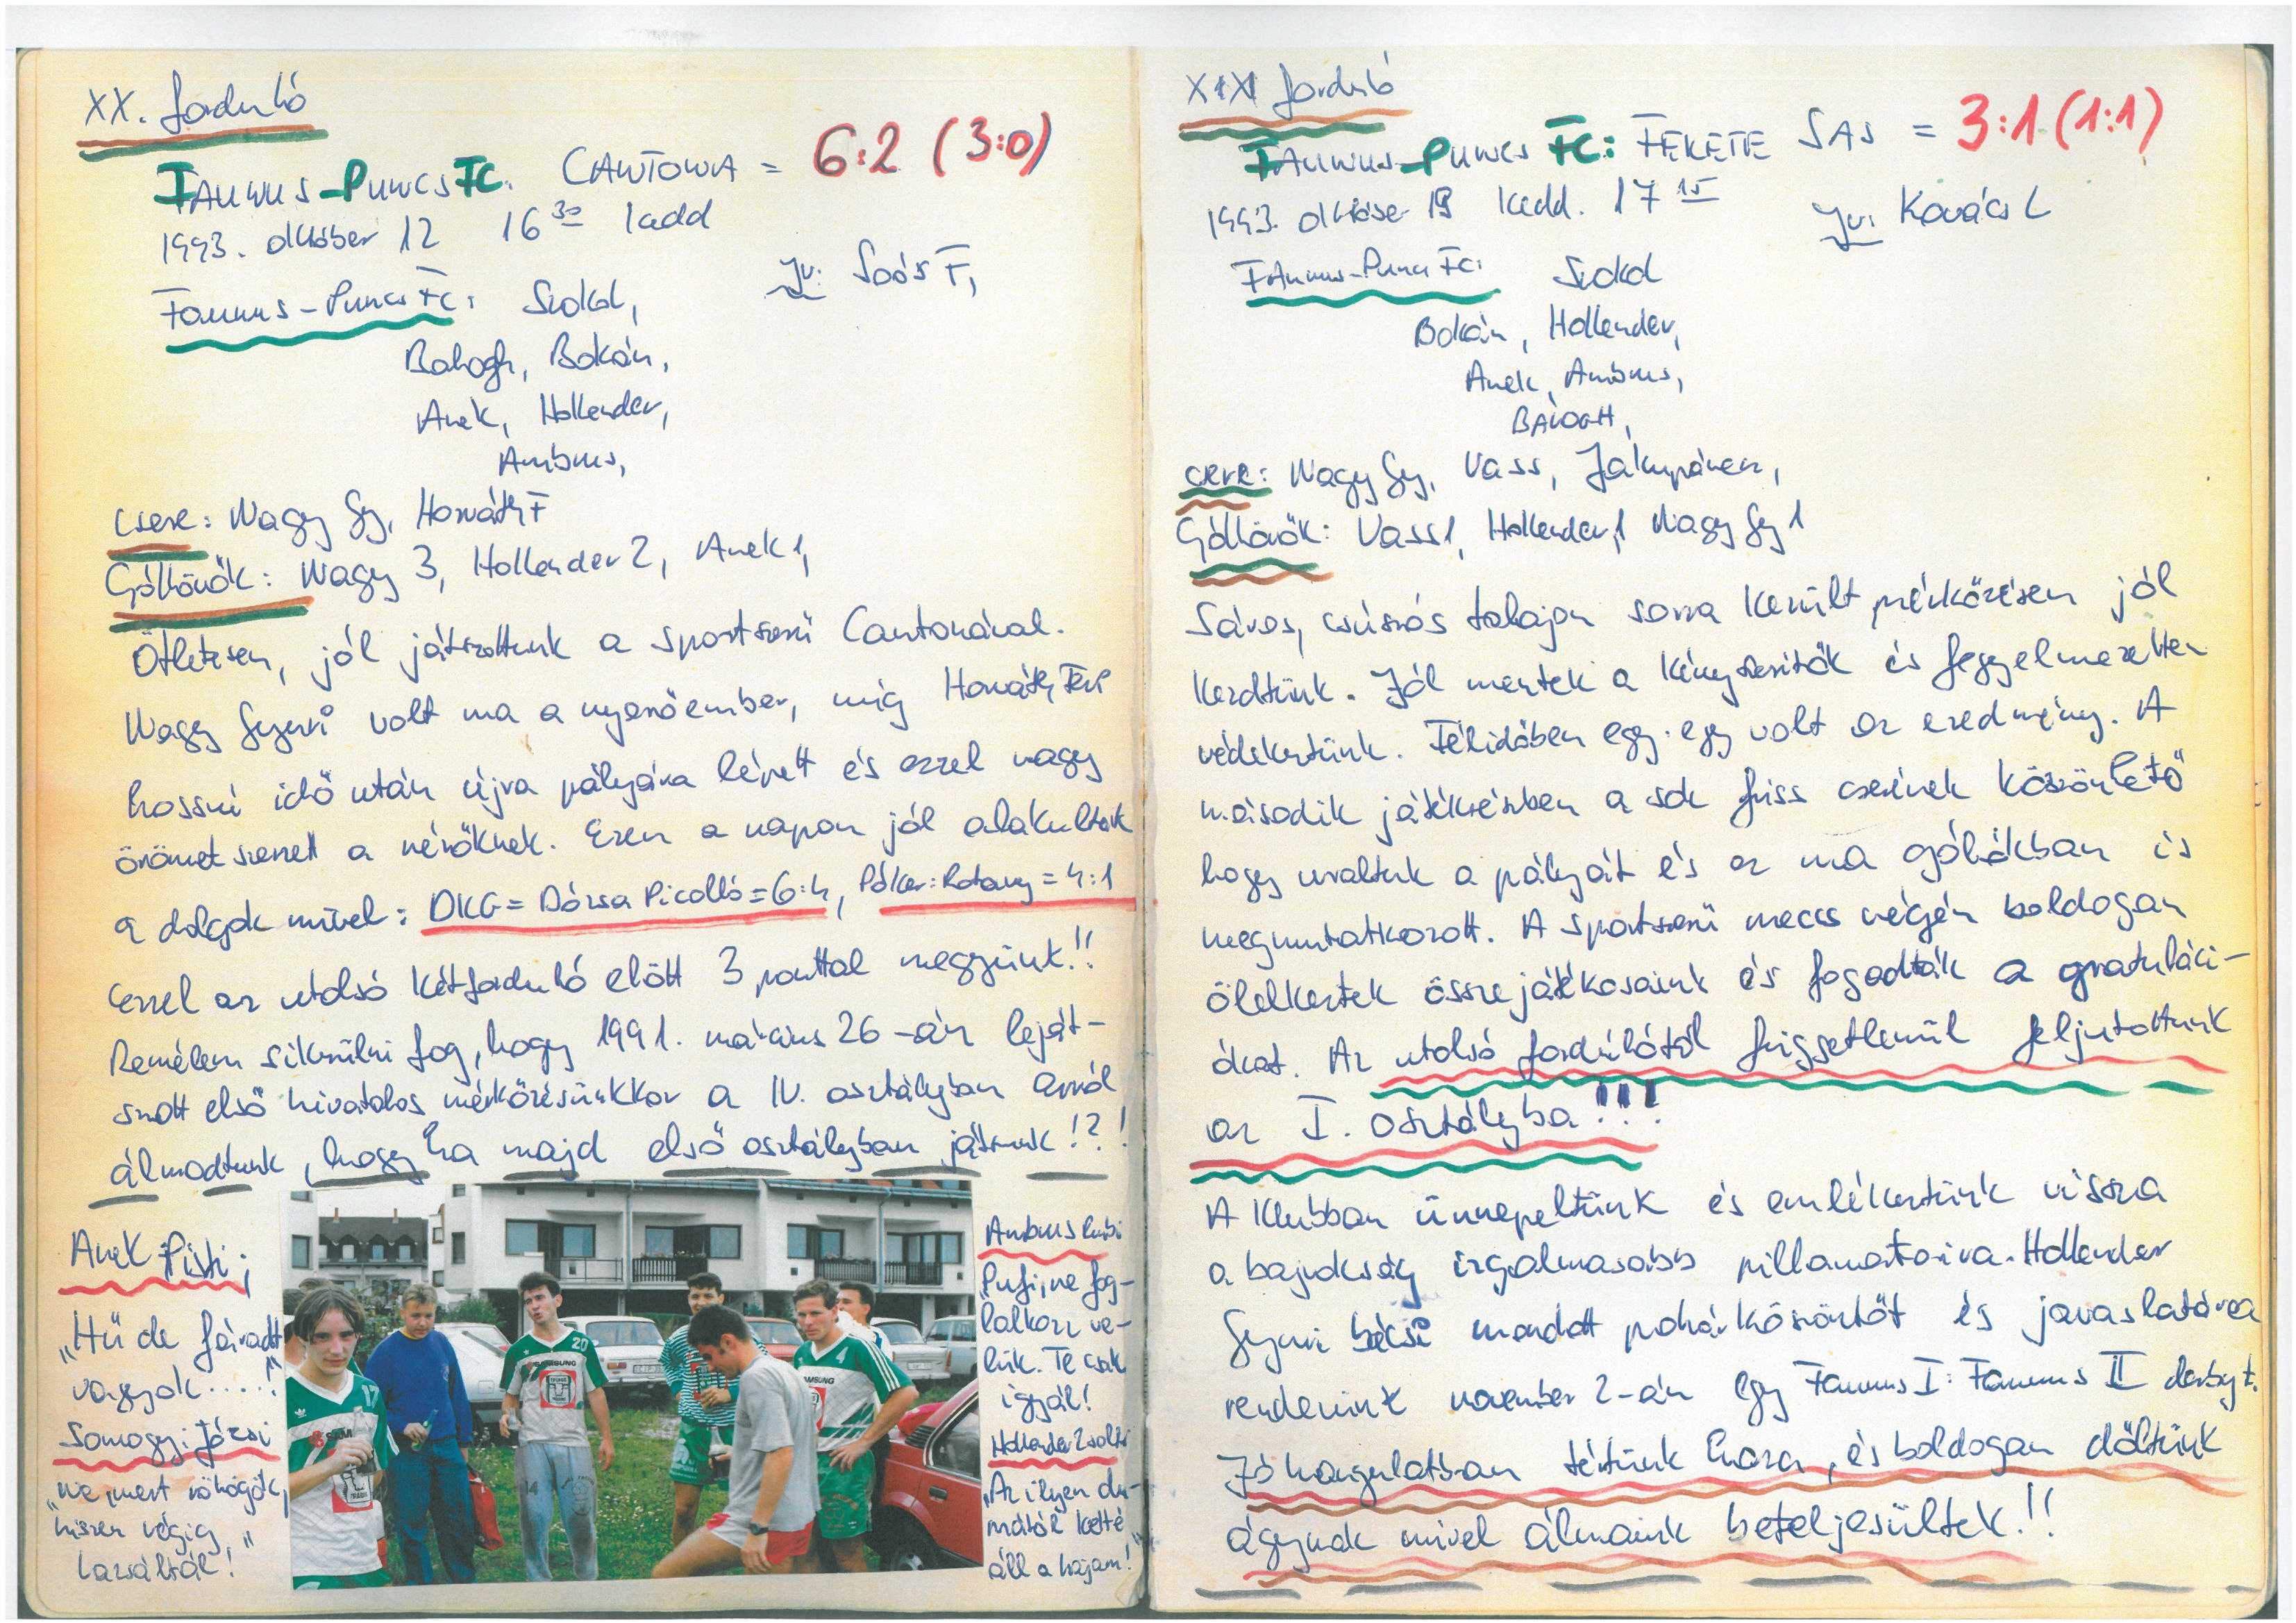 XX. forduló
TAUNUS-PUNCS FC: CANTONA = 6:2 (3:0)
1993. október 12 16 30 kedd
Jv: Soós F,
Taunus-Puncs FC: Szokol,
Balogh, Bokán,
Anek, Hollender,
Ambrus,
Csere: Nagy Gy, Horváth F
Góllövők: Nagy 3, Hollender 2, Anek 1,
Ötletesen, jól játszottunk a sportszerű Cantonával.
Nagy Gyuri volt ma a nyerőember, míg Horváth Feri
hosszú idő után újra pályára lépett és ezzel nagy
örömet szerzett a nézőknek. Ezen a napon jól alakultak
a dolgok mivel: DKG = Dózsa Picolló = 6:4, Póker: Rotary = 4:1
ezzel az utolsó két forduló előtt 3 ponttal megyünk!!
Remélem sikerülni fog, hogy 1991. március 26-án leját-
szott első hivatalos mérkőzésünkkor a IV. osztályban arról
álmodtunk, hogy ha majd első osztályban játszunk!?!
Anek Pisti;
„Hű de fáradt
vagyok.....!"
Somogyi Józsi
„ne, mert röhögök,
hiszen végig
lazsáltál!"
20
SAMSUNG
TAUNUS
17
14
4
Ambrus Rubi
"Pufi, ne fog-
lalkozz ve-
lük. Te csak
igyál!
Hollender Zsolti
„Az ilyen du-
mától ketté
áll a hajam!"
XXI forduló
TAUNUS-PUNCS FC: FEKETE SAS = 3:1 (1:1)
1993. október 19 kedd. 17 15
Jv: Kovács L
Taunus-Puncs FC: Szokol
Bokán, Hollender,
Anek, Ambrus,
BALOGH,
csere: Nagy Gy, Vass, Zakupánen,
Góllövők: Vass 1, Hollender 1, Nagy Gy 1
Sáros, csúszós talajon sorra került mérkőzésen jól
kezdtünk. Jól mentek a kényszerítők és fegyelmezetten
védekeztünk. Félidőben egy-egy volt az eredmény. A
második játékrészben a sok friss cserének köszönhető
hogy uraltuk a pályát és ez ma gólokban is
megmutatkozott. A sportszerű meccs végén boldogan
ölelkeztek össze játékosaink és fogadták a gratuláci-
ókat. Az utolsó fordulótól függetlenül feljutottunk
az I. osztályba!!!
A klubban ünnepeltünk és emlékeztünk vissza
a bajnokság izgalmasabb pillanataira. Hollender
Gyuri bácsi mondott pohárköszöntőt és javaslatára
rendezünk november 2-án egy Taunus I: Taunus II derbyt.
Jó hangulatban tértünk haza, és boldogan dőltünk
ágynak mivel álmaink beteljesültek!!